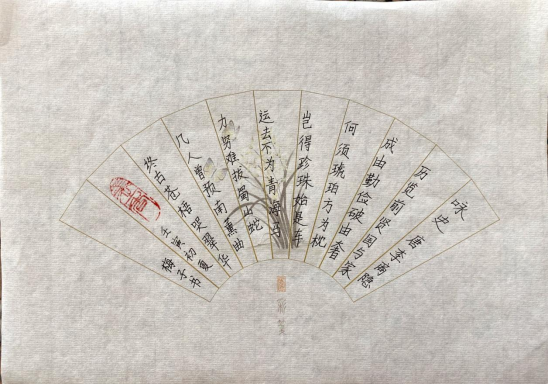 咏史 唐 李商隐
历览前贤国与家
成由勤俭破由奢
何须琥珀方为枕
岂得珍珠始是车
运去不为青海马
力穷难拔蜀山蛇
几人曾预南薰曲
终古苍梧哭翠华
壬寅初夏
梅子书